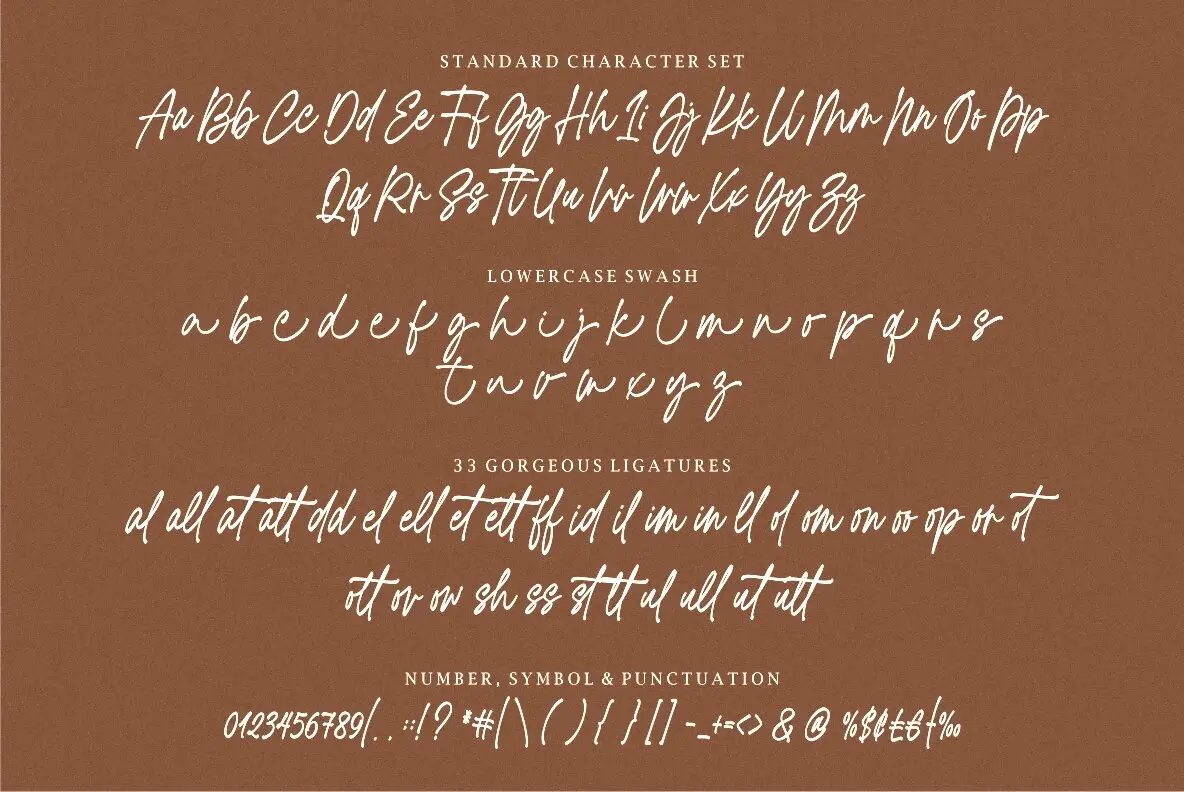 STANDARD CHARACTER SET
Aa Bb Cc Dd Ee Ff Gg Hh Ii Jj Kk Ll Mm Nn Oo Pp
Qq Rr Ss Tt Uu Vv Ww Xx Yy Zz
LOWERCASE SWASH
a b c d e f g h i j k l m n o p q r s
t u v w x y z
33 GORGEOUS LIGATURES
al all at att dd el ell et ett ff id il im in ll ol om on oo op or ot
ott ov ow sh ss st tt ul ull ut utt
NUMBER, SYMBOL & PUNCTUATION
0123456789 . , : ; ! ? * # / \ ( ) { } [ ] - _ + = < > & @ % $ ¢ £ € ‰